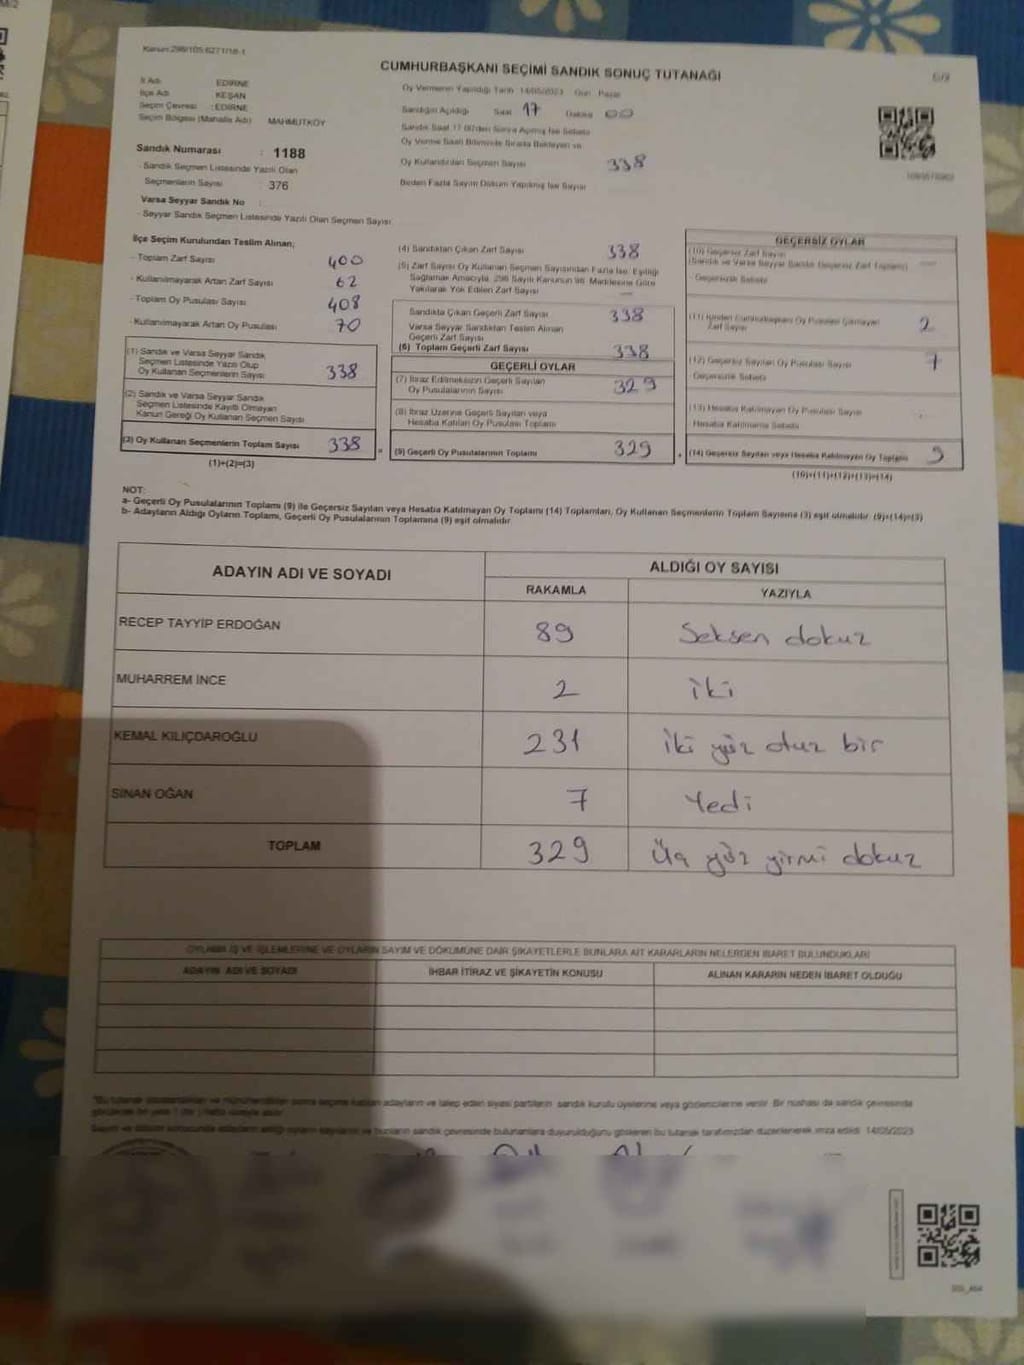 Kanun:298/105;6271/18-1
CUMHURBAŞKANI SEÇİMİ SANDIK SONUÇ TUTANAĞI
İl Adı EDİRNE
İlçe Adı KEŞAN
Seçim Çevresi : EDİRNE
Seçim Bölgesi (Mahalle Adı) MAHMUTKÖY
Sandık Numarası : 1188
- Sandık Seçmen Listesinde Yazılı Olan
Seçmenlerin Sayısı : 376
Varsa Seyyar Sandık No :
- Seyyar Sandık Seçmen Listesinde Yazılı Olan Seçmen Sayısı
Oy Vermenin Yapıldığı Tarih 14/05/2023 Gün Pazar
Sandığın Açıldığı Saat 17 Dakika 00
Sandık Saat 17.00'den Sonra Açılmış İse Sebebi
Oy Verme Saati Bitiminde Sırada Bekleyen ve
Oy Kullandırılan Seçmen Sayısı 338
Birden Fazla Sayım Döküm Yapılmış İse Sayısı
İlçe Seçim Kurulundan Teslim Alınan;
- Toplam Zarf Sayısı 400
- Kullanılmayarak Artan Zarf Sayısı 62
- Toplam Oy Pusulası Sayısı 408
- Kullanılmayarak Artan Oy Pusulası 70
(1) Sandık ve Varsa Seyyar Sandık
Seçmen Listesinde Yazılı Olup
Oy Kullanan Seçmenlerin Sayısı 338
(2) Sandık ve Varsa Seyyar Sandık
Seçmen Listesinde Kayıtlı Olmayan
Kanun Gereği Oy Kullanan Seçmen Sayısı
(3) Oy Kullanan Seçmenlerin Toplam Sayısı 338
(1)+(2)=(3)
(4) Sandıktan Çıkan Zarf Sayısı 338
(5) Zarf Sayısı Oy Kullanan Seçmen Sayısından Fazla İse, Eşitliği
Sağlamak Amacıyla, 298 Sayılı Kanunun 98. Maddesine Göre
Yakılarak Yok Edilen Zarf Sayısı —
Sandıkta Çıkan Geçerli Zarf Sayısı 338
Varsa Seyyar Sandıktan Teslim Alınan
Geçerli Zarf Sayısı
(6) Toplam Geçerli Zarf Sayısı 338
GEÇERLİ OYLAR
(7) İtiraz Edilmeksizin Geçerli Sayılan
Oy Pusulalarının Sayısı 329
(8) İtiraz Üzerine Geçerli Sayılan veya
Hesaba Katılan Oy Pusulası Toplamı
= (9) Geçerli Oy Pusulalarının Toplamı 329
GEÇERSİZ OYLAR
(10) Geçersiz Zarf Sayısı
(Sandık ve Varsa Seyyar Sandık Geçersiz Zarf Toplamı) —
- Geçersizlik Sebebi
(11) İçinden Cumhurbaşkanı Oy Pusulası Çıkmayan
Zarf Sayısı 2
(12) Geçersiz Sayılan Oy Pusulası Sayısı 7
Geçersizlik Sebebi
(13) Hesaba Katılmayan Oy Pusulası Sayısı
Hesaba Katılmama Sebebi
+ (14) Geçersiz Sayılan veya Hesaba Katılmayan Oy Toplamı 9
(10)+(11)+(12)+(13)=(14)
NOT:
a- Geçerli Oy Pusulalarının Toplamı (9) ile Geçersiz Sayılan veya Hesaba Katılmayan Oy Toplamı (14) Toplamları, Oy Kullanan Seçmenlerin Toplam Sayısına (3) eşit olmalıdır. (9)+(14)=(3)
b- Adayların Aldığı Oyların Toplamı, Geçerli Oy Pusulalarının Toplamına (9) eşit olmalıdır.
ADAYIN ADI VE SOYADI ALDIĞI OY SAYISI
RAKAMLA YAZIYLA
RECEP TAYYİP ERDOĞAN 89 Seksen dokuz
MUHARREM İNCE 2 iki
KEMAL KILIÇDAROĞLU 231 iki yüz otuz bir
SİNAN OĞAN 7 Yedi
TOPLAM 329 Üç yüz yirmi dokuz
OYLAMA İŞ VE İŞLEMLERİNE VE OYLARIN SAYIM VE DÖKÜMÜNE DAİR ŞİKAYETLERLE BUNLARA AİT KARARLARIN NELERDEN İBARET BULUNDUKLARI
ADAYIN ADI VE SOYADI İHBAR İTİRAZ VE ŞİKAYETİN KONUSU ALINAN KARARIN NEDEN İBARET OLDUĞU
adayların ve talep eden siyasi partilerin sandık kurulu üyelerine veya gözlemcilerine verilir. Bir nüshası da sandık çevresinde
bunların sandık çevresinde bulunanlara duyurulduğunu gösteren bu tutanak tarafımızdan düzenlenerek imza edildi. 14/05/2023